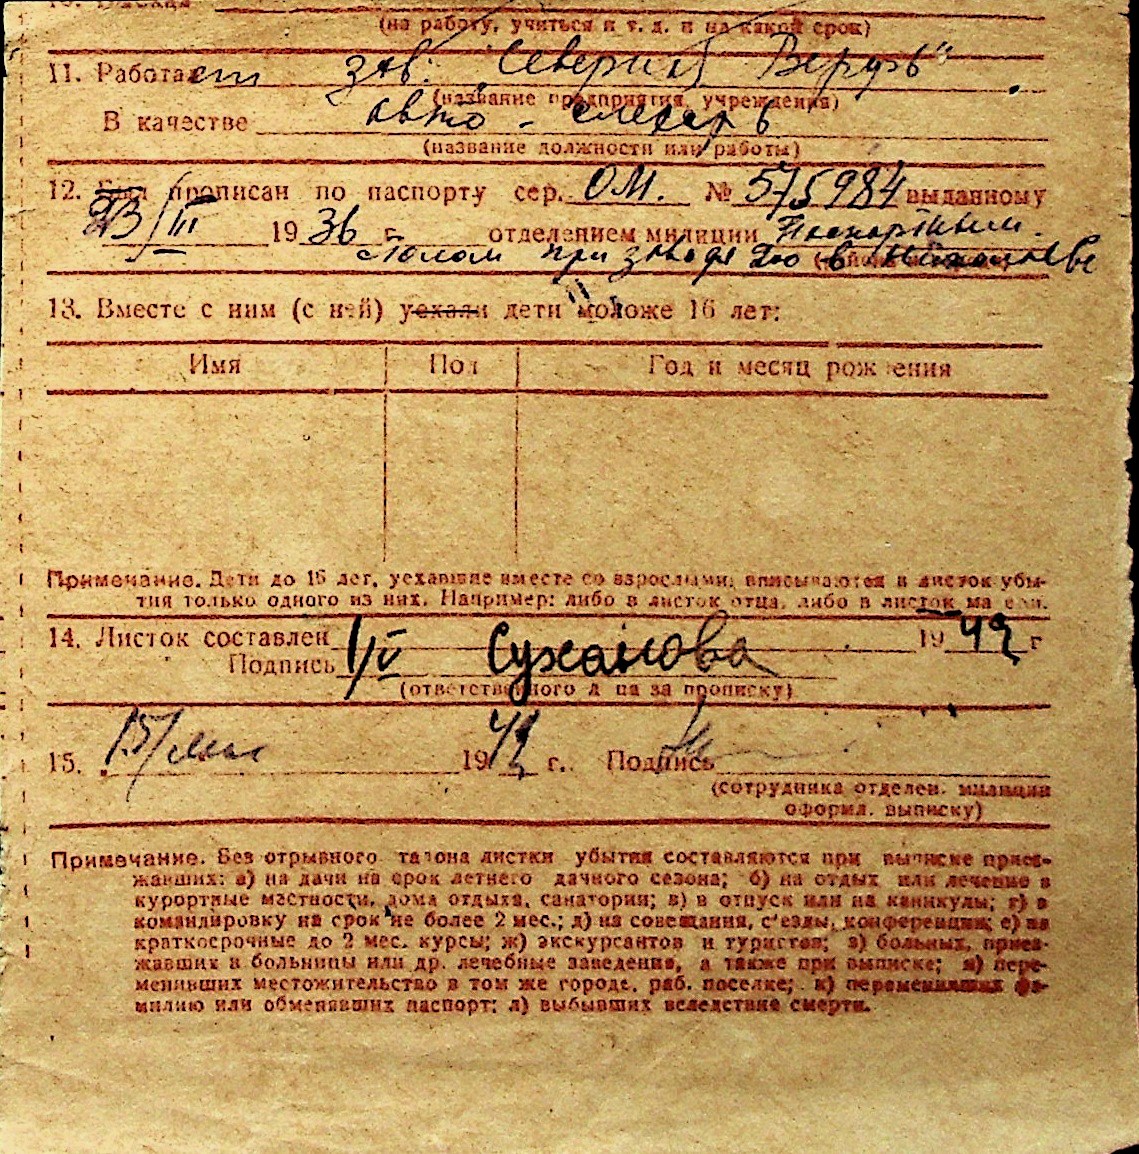 (на работу, учиться и т. д. и на какой срок)
11. Работает зав. "Северная Верфь"
(название предприятия, учреждения)
В качестве авто-слесарь
(название должности или работы)
12. Был прописан по паспорту сер. ОМ. № 575984 выданному
23/III 1936 г. отделением милиции Паспортным
столом при заводе 200 в Николаеве
13. Вместе с ним (с ней) уехали дети моложе 16 лет:
Имя Пол Год и месяц рождения
Примечание. Дети до 16 лет, уехавшие вместе со взрослыми, вписываются в листок убы-
тия только одного из них. Например: либо в листок отца, либо в листок матери.
14. Листок составлен 1/V 1942 г
Подпись Суханова
(ответственного лица за прописку)
15. 15/мая 1942 г. Подпись
(сотрудника отделен. милиции
оформл. выписку)
Примечание. Без отрывного талона листки убытия составляются при выписке приез-
жавших: а) на дачи на срок летнего дачного сезона; б) на отдых или лечение в
курортные местности, дома отдыха, санатории; в) в отпуск или на каникулы; г) в
командировку на срок не более 2 мес.; д) на совещания, с'езды, конференции; е) на
краткосрочные до 2 мес. курсы; ж) экскурсантов и туристов; з) больных, приез-
жавших в больницы или др. лечебные заведения, а также при выписке; и) пере-
менивших местожительство в том же городе, раб. поселке; к) переменивших фа-
милию или обменявших паспорт; л) выбывших вследствие смерти.